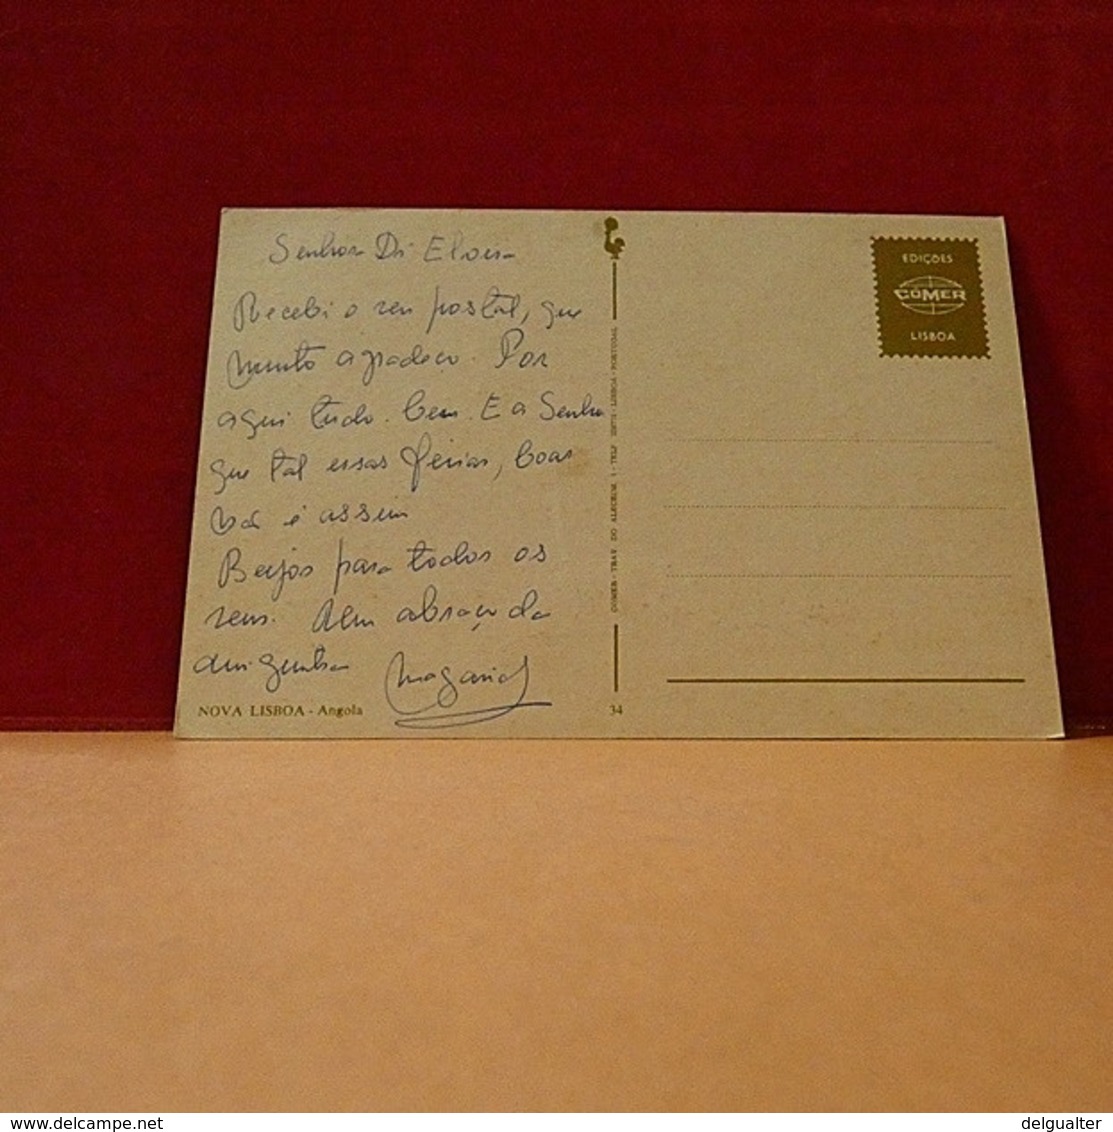 Senhora Dª Eloisa
Recebi o seu postal, que
muito agradeço. Por
aqui tudo bem. E a Senhora
que tal essas férias, boas
não é assim
Beijos para todos os
seus. Um abraço da
amiguinha
NOVA LISBOA - Angola
COMER - TRAV. DO ALECRIM, - TELF - LISBOA - PORTUGAL
34
EDIÇÕES
COMER
LISBOA
delcampe.net
delgualter